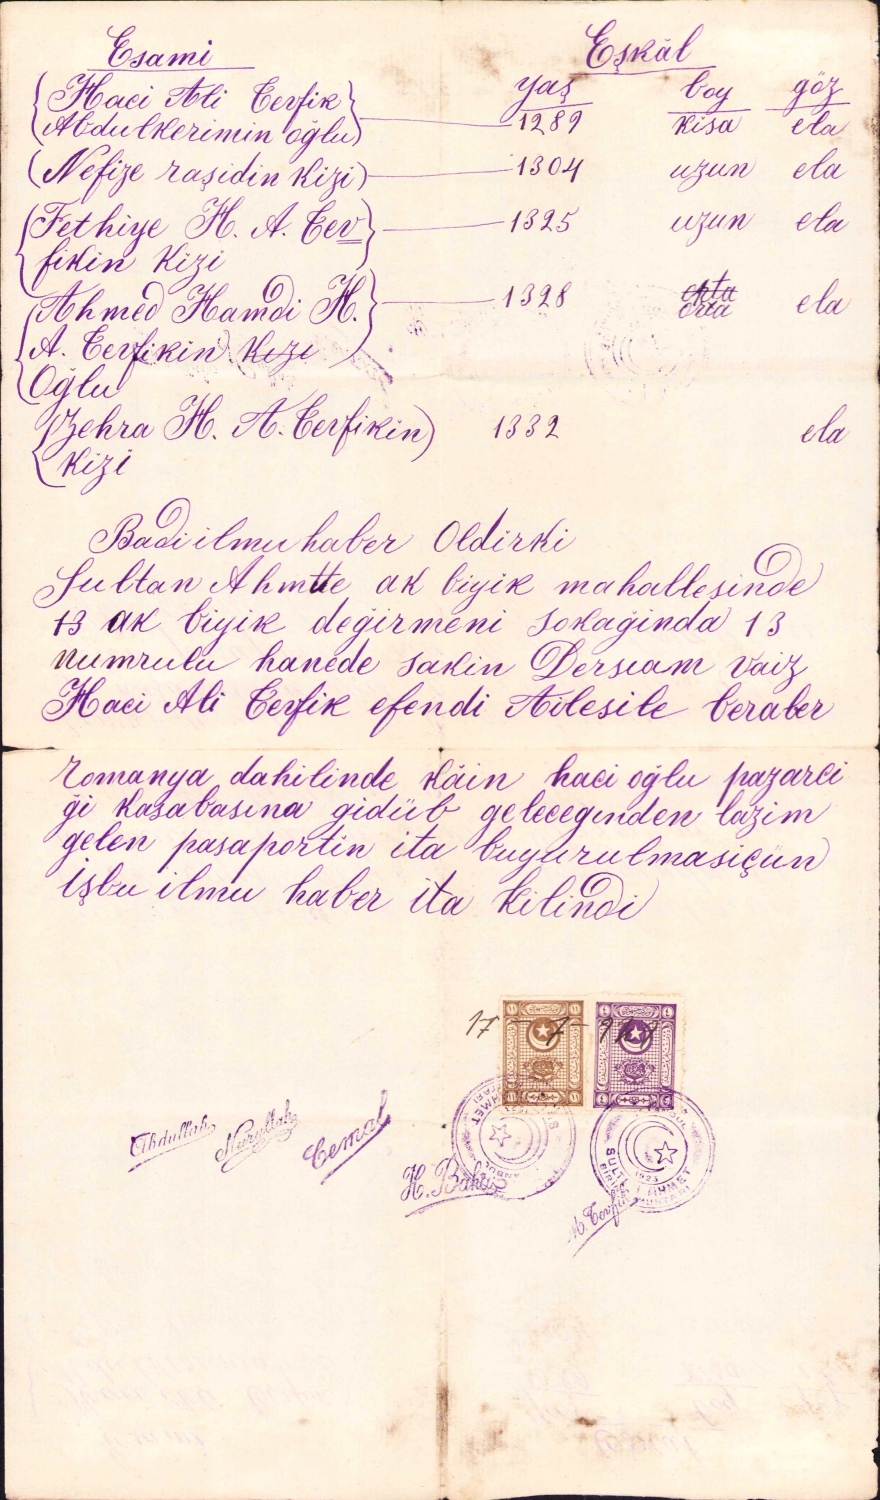 Esami Eşkâl
yaş boy göz
Haci Ali Tevfik
Abdulkerimin oğlu 1289 kisa ela
(Nefize raşidin kizi) 1304 uzun ela
Fethiye H. A. Tev 1325 uzun ela
fikin kizi
Ahmed Hamdi H. 1328 orta ela
A. Tevfikin kizi
Oğlu
Zehra H. A. Tevfikin 1332 ela
kizi
Badi ilmu haber Oldirki
Sultan Ahmtte ak biyik mahallesinde
13 ak biyik değirmeni sokağinda 13
numrulu hanede sakin Dersiam vaiz
Haci Ali Tevfik efendi Ailesile beraber
romanya dahilinde kâin haci oğlu pazarci
ği kasabasına gidüb geleceginden lazim
gelen pasaportin ita buyurulmasiçün
işbu ilmu haber ita kilindi
17 - 7 - 929
Abdullah Nurullah Cemal
H. Baha
M. Tevfik
SULT AHMET
1923